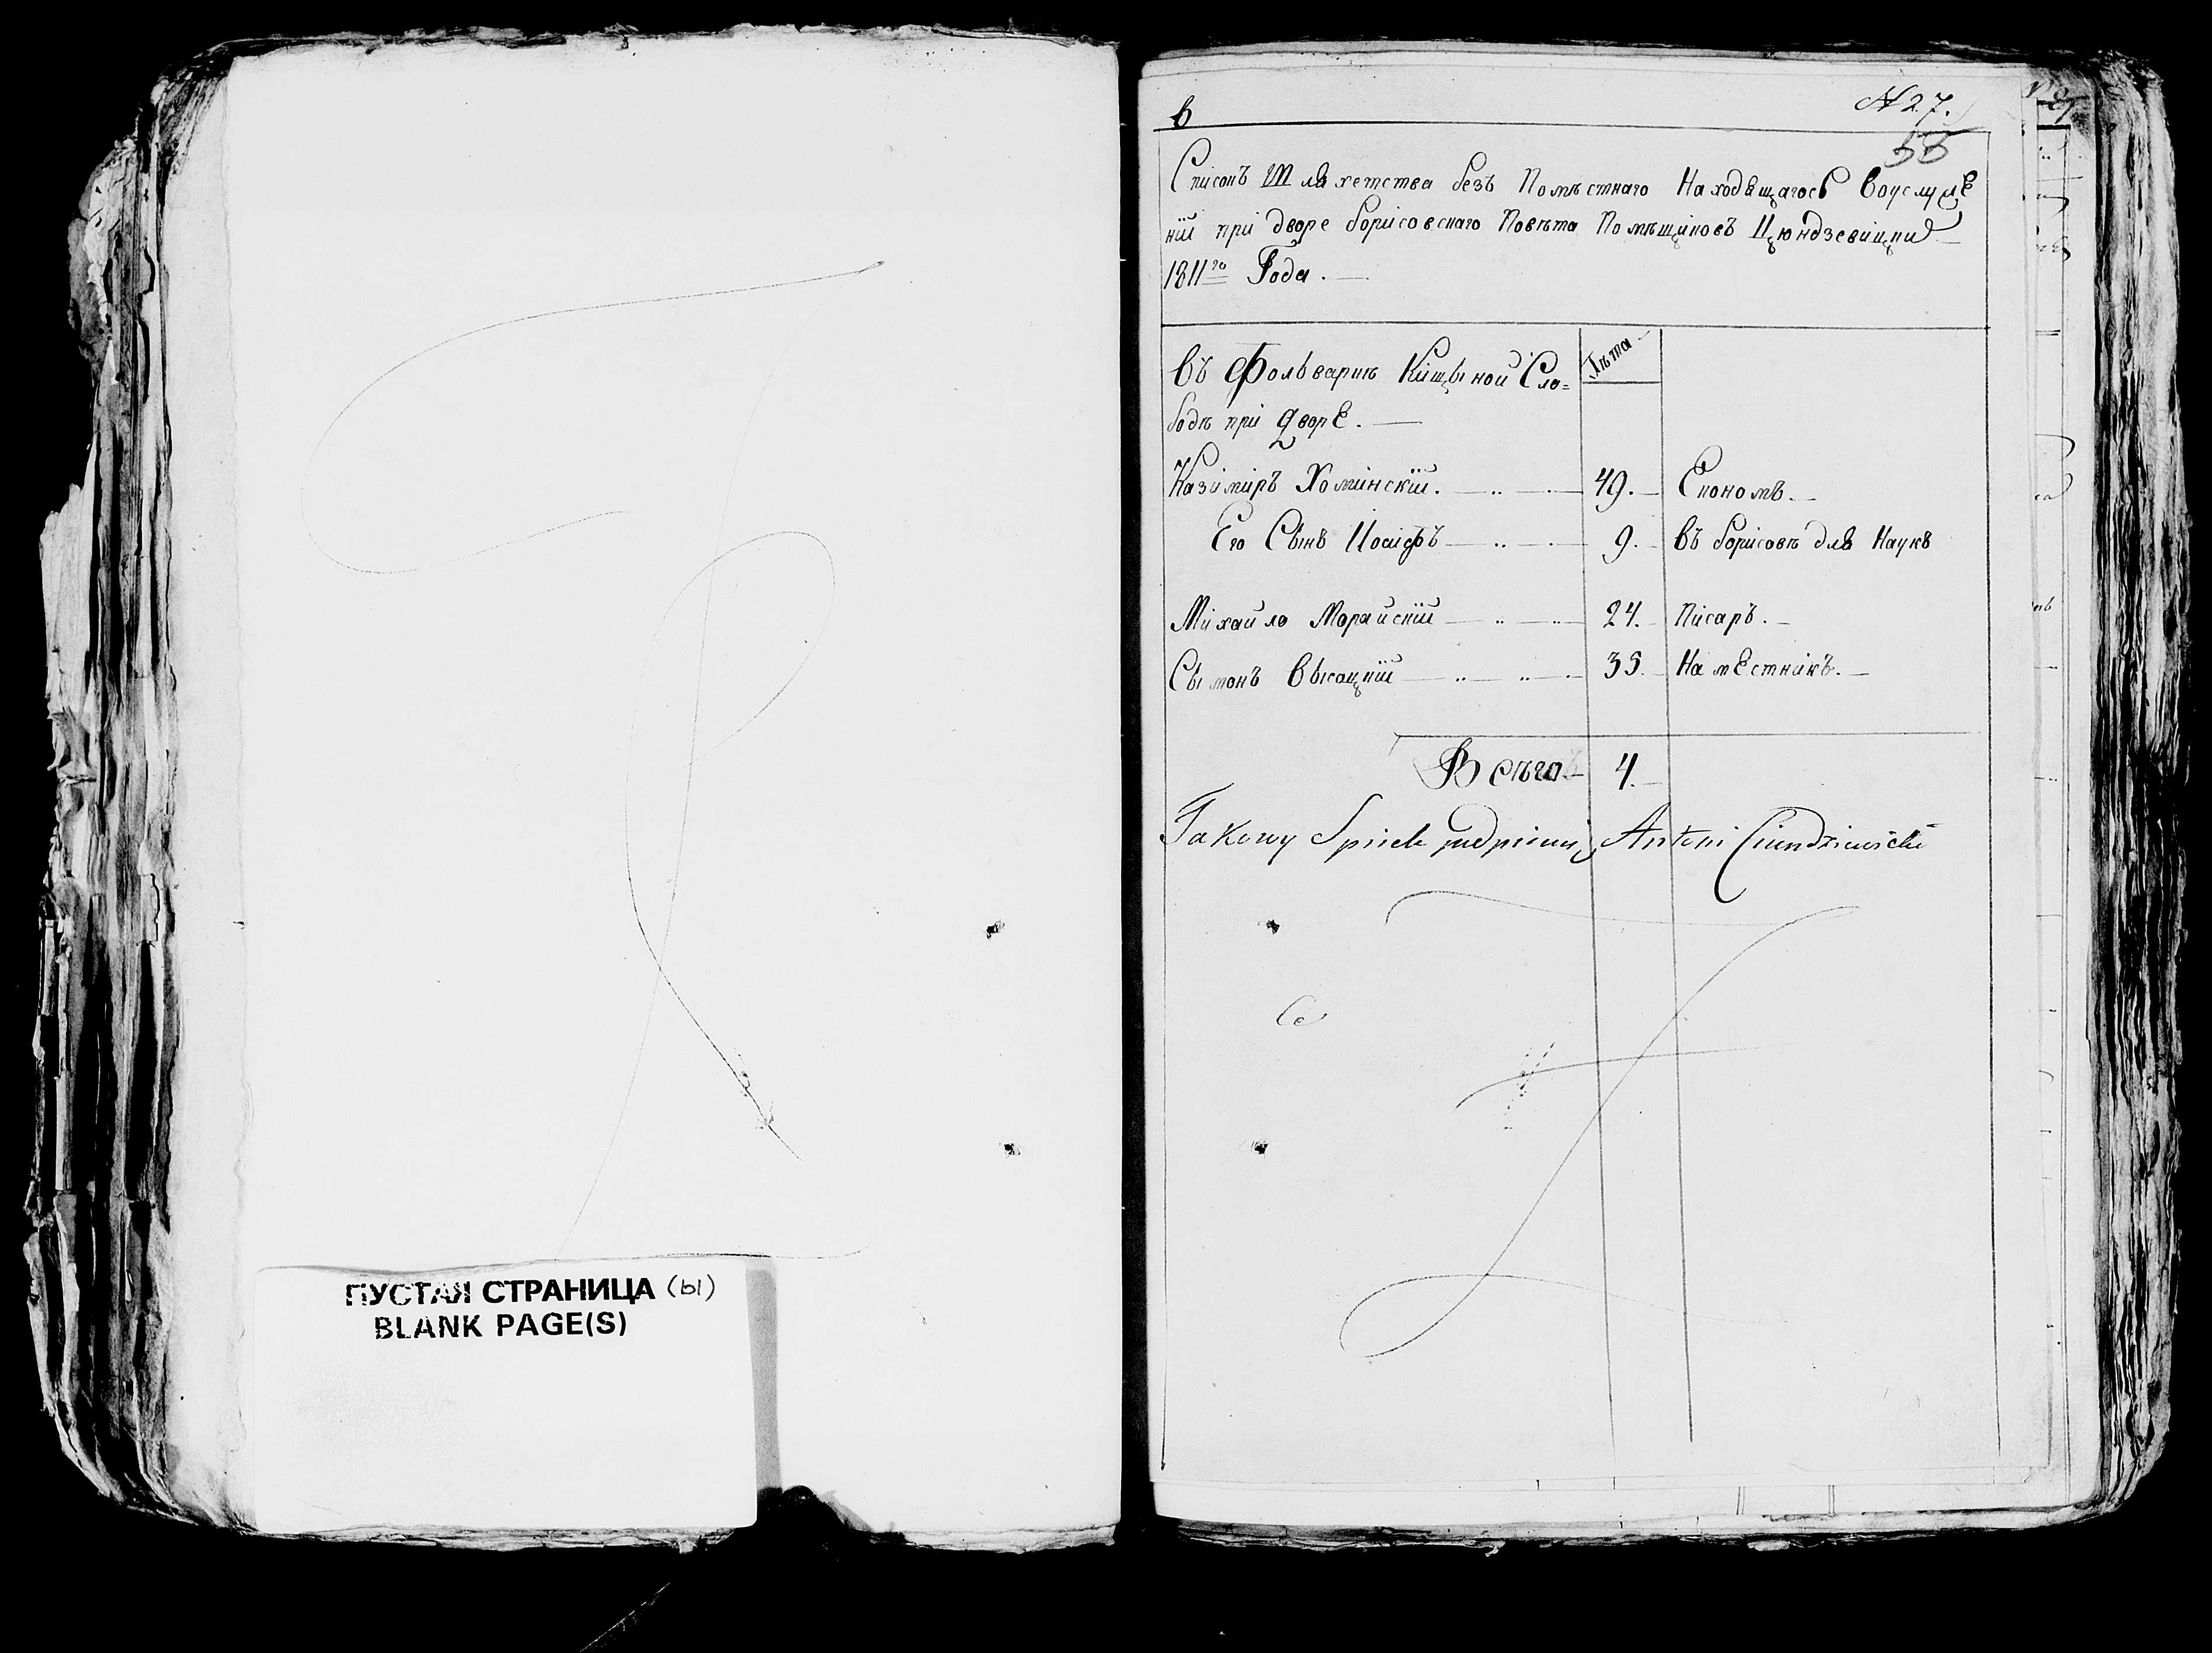 ПУСТАЯ СТРАНИЦА (ы)
BLANK PAGE(S)
в
N 27.
55
Списокъ Шляхетства безъ Помѣстнаго Находящагося воуслуже
нїи прі дворе борисовскаго Повѣта Помѣщіковъ Цюндзевіцкиꙗ
1811го Года. —
въ Фольваркѣ Кищыной Сло=
бодѣ прі дворе. —
Лѣта
Казіміръ Хомінскїй. 49. Економъ. —
Его Сынъ Иосіфъ 9. въ борисовѣ для Наукъ
Міхайло Морайскїй 24. Пісаръ. —
Сымонъ Высацкїй 35. Наместнікъ. —
Всѣго 4.
Takowy Spisek podpisuię Antoni Ciundziewicki
Се